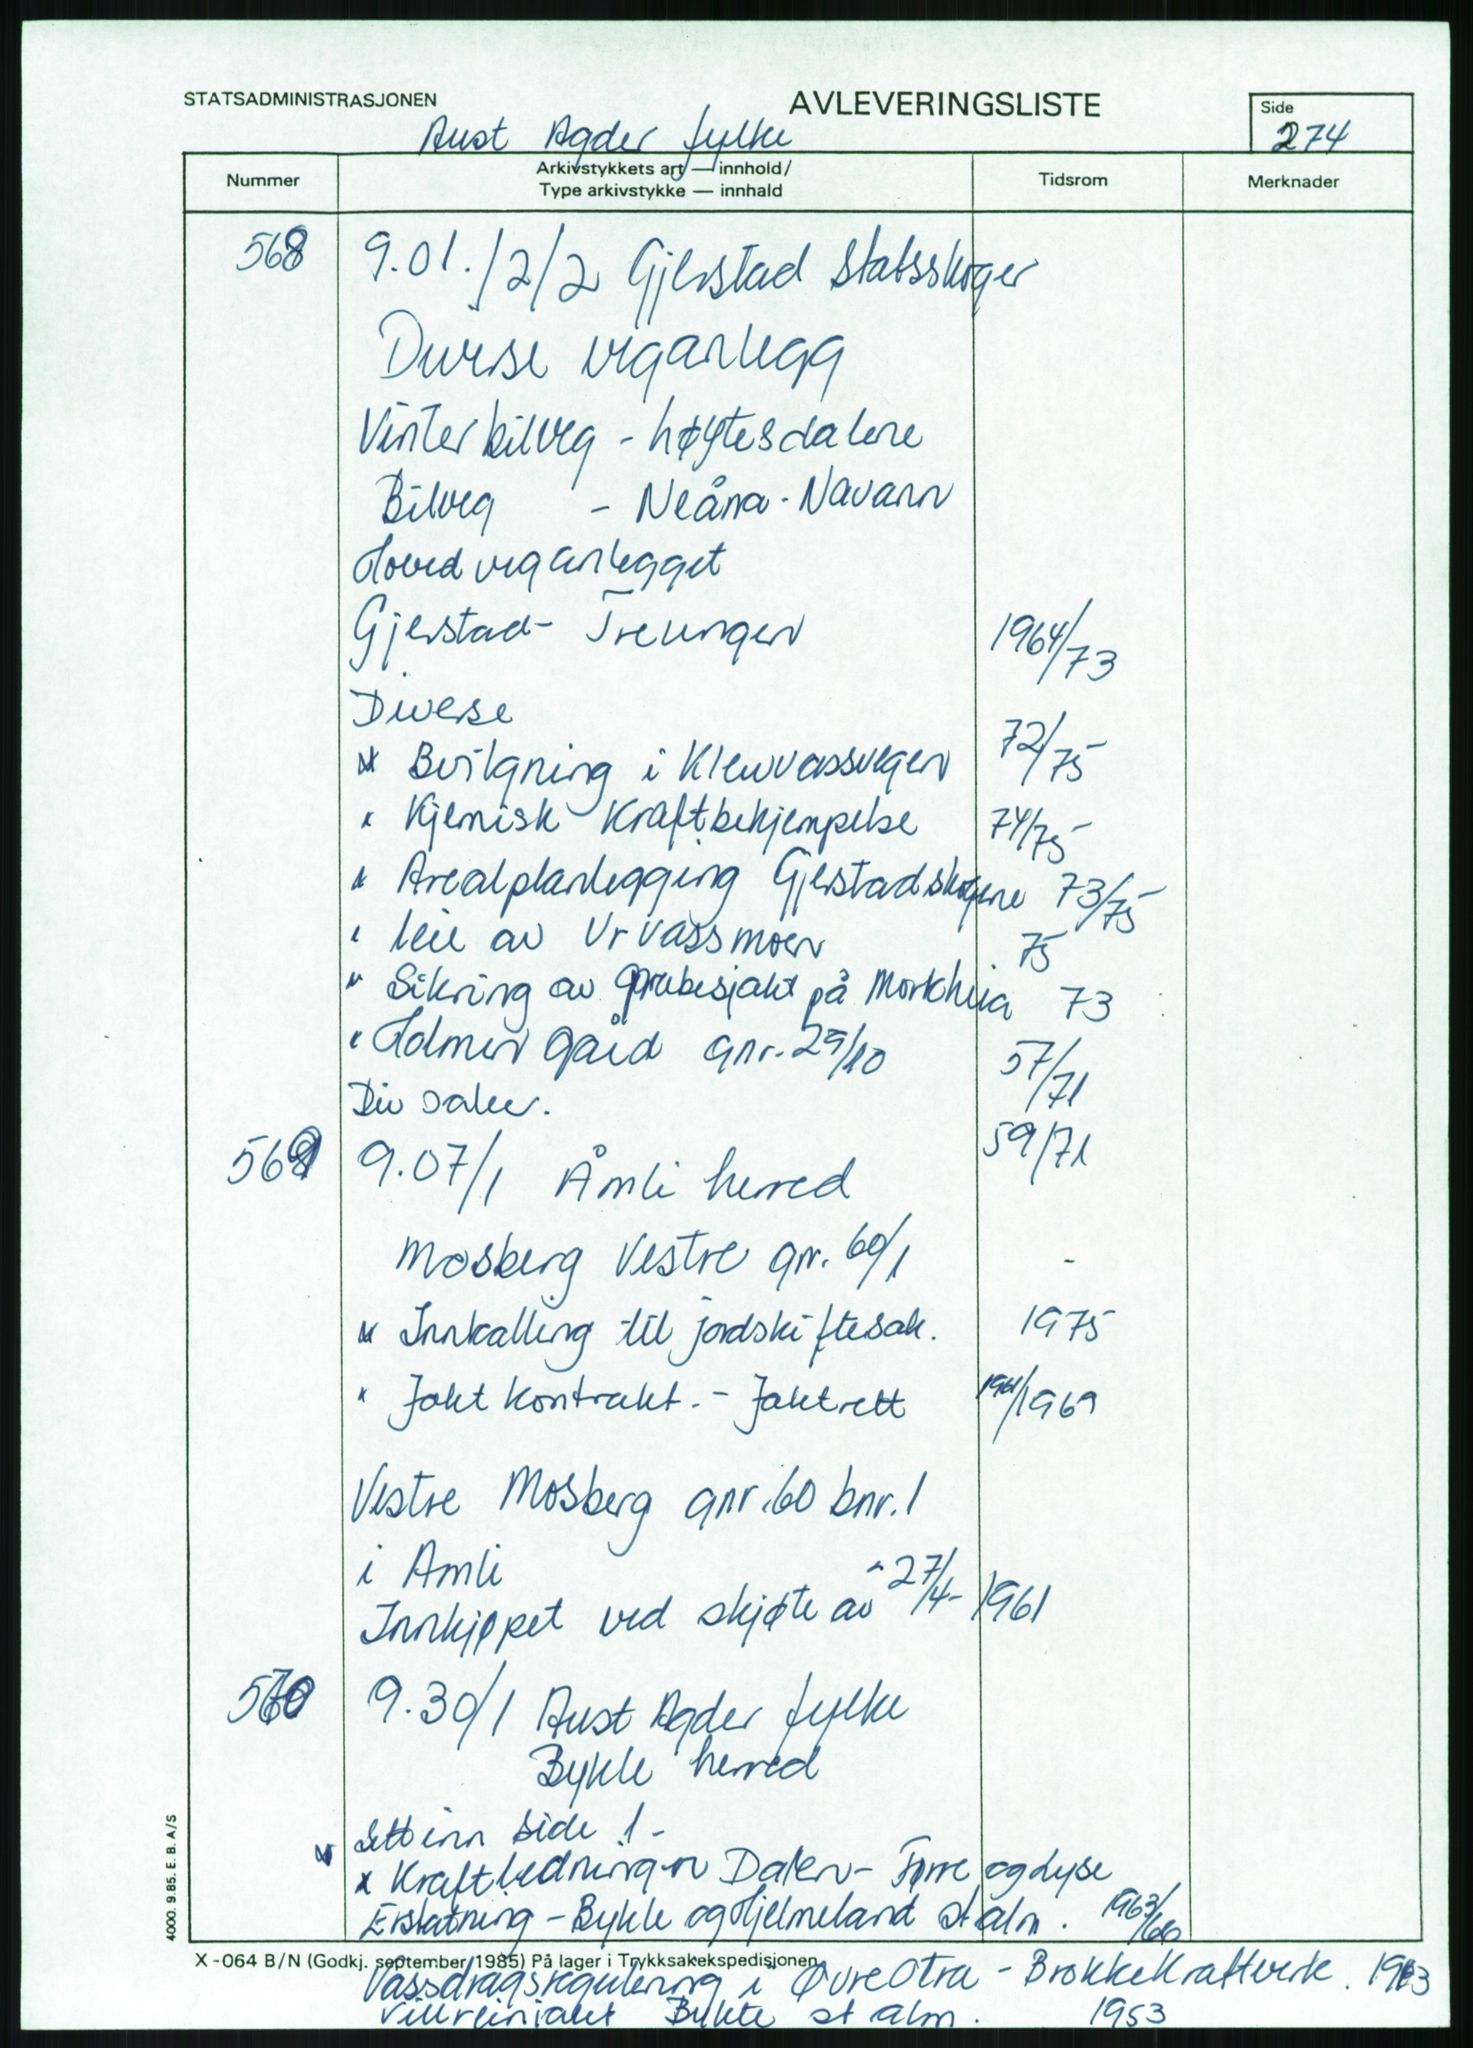 STATSADMINISTRASJONEN
AVLEVERINGSLISTE
Side
274
Aust Agder fylke
Nummer
Arkivstykkets art — innhold/
Type arkivstykke — innhald
Tidsrom
Merknader
568 9.01./2/2 Gjerstad Statsskoger
Diverse veganlegg
Vinterbilveg - Høytesdalene
Bilveg - Neåna - Navann
Hovedveganlegget
Gjerstad - Treungen 1964/73
Diverse
× Bevilgning i Klewvassvegen 72/75
× Kjemisk Krattbekjempelse 74/75
× Arealplanlegging Gjerstadskogene 73/75
× leie av Urvassmoen 75
× Sikring av grubesjakt på Morkheia 73
× Holmen gård gnr. 29/10 57/71
Div saker. 59/71
569 9.07/1 Åmli herred
Mosberg Vestre gnr. 60/1 -
× Innkalling til jordskiftesak. 1975
× Jaktkontrakt. - Jaktrett 1961/1969
Vestre Mosberg gnr. 60 bnr. 1
i Amli
Innkjøpet ved skjøte av 27/4- 1961
570 9.30/1 Aust Agder fylke
Bykle herred
× Sett inn side 1 -
× Kraftledningen Dalen - Førre og Lyse
Erstatning - Bykle og Hjelmeland st alm. 1963/66
4000. 9.85. E. B. A/S
X-064 B/N (Godkj. september 1985) På lager i Trykksakekspedisjonen
Vassdragsregulering i Øvre Otra - Brokke Kraftverk. 1963
Villreinjakt Bykle st alm. 1953